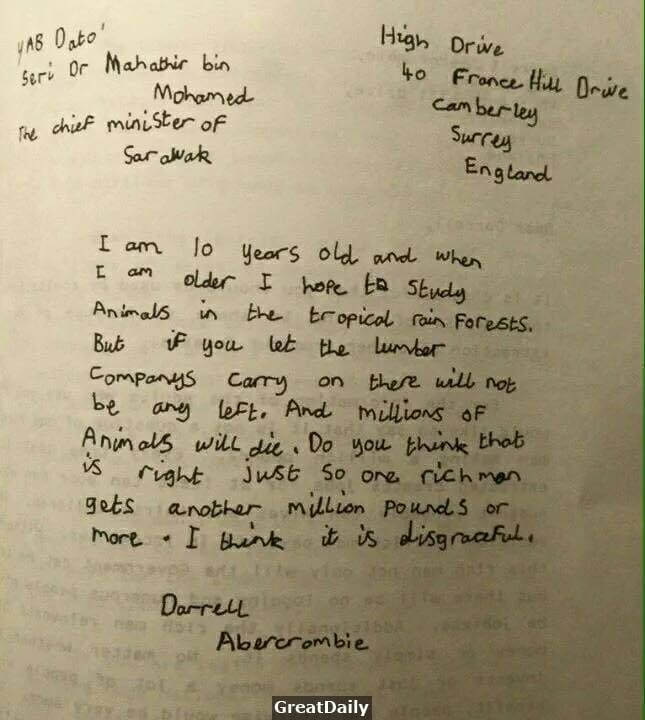 YAB Dato'
Seri Dr Mahathir bin
Mohamed
The chief minister of
Sarawak
High Drive
40 France Hill Drive
Camberley
Surrey
England
I am 10 years old and when
I am older I hope to Study
Animals in the tropical rain Forests.
But if you let the lumber
Companys carry on there will not
be any left. And millions of
Animals will die. Do you think that
is right just so one rich man
gets another million pounds or
more. I think it is disgraceful.
Darrell
Abercrombie
GreatDaily